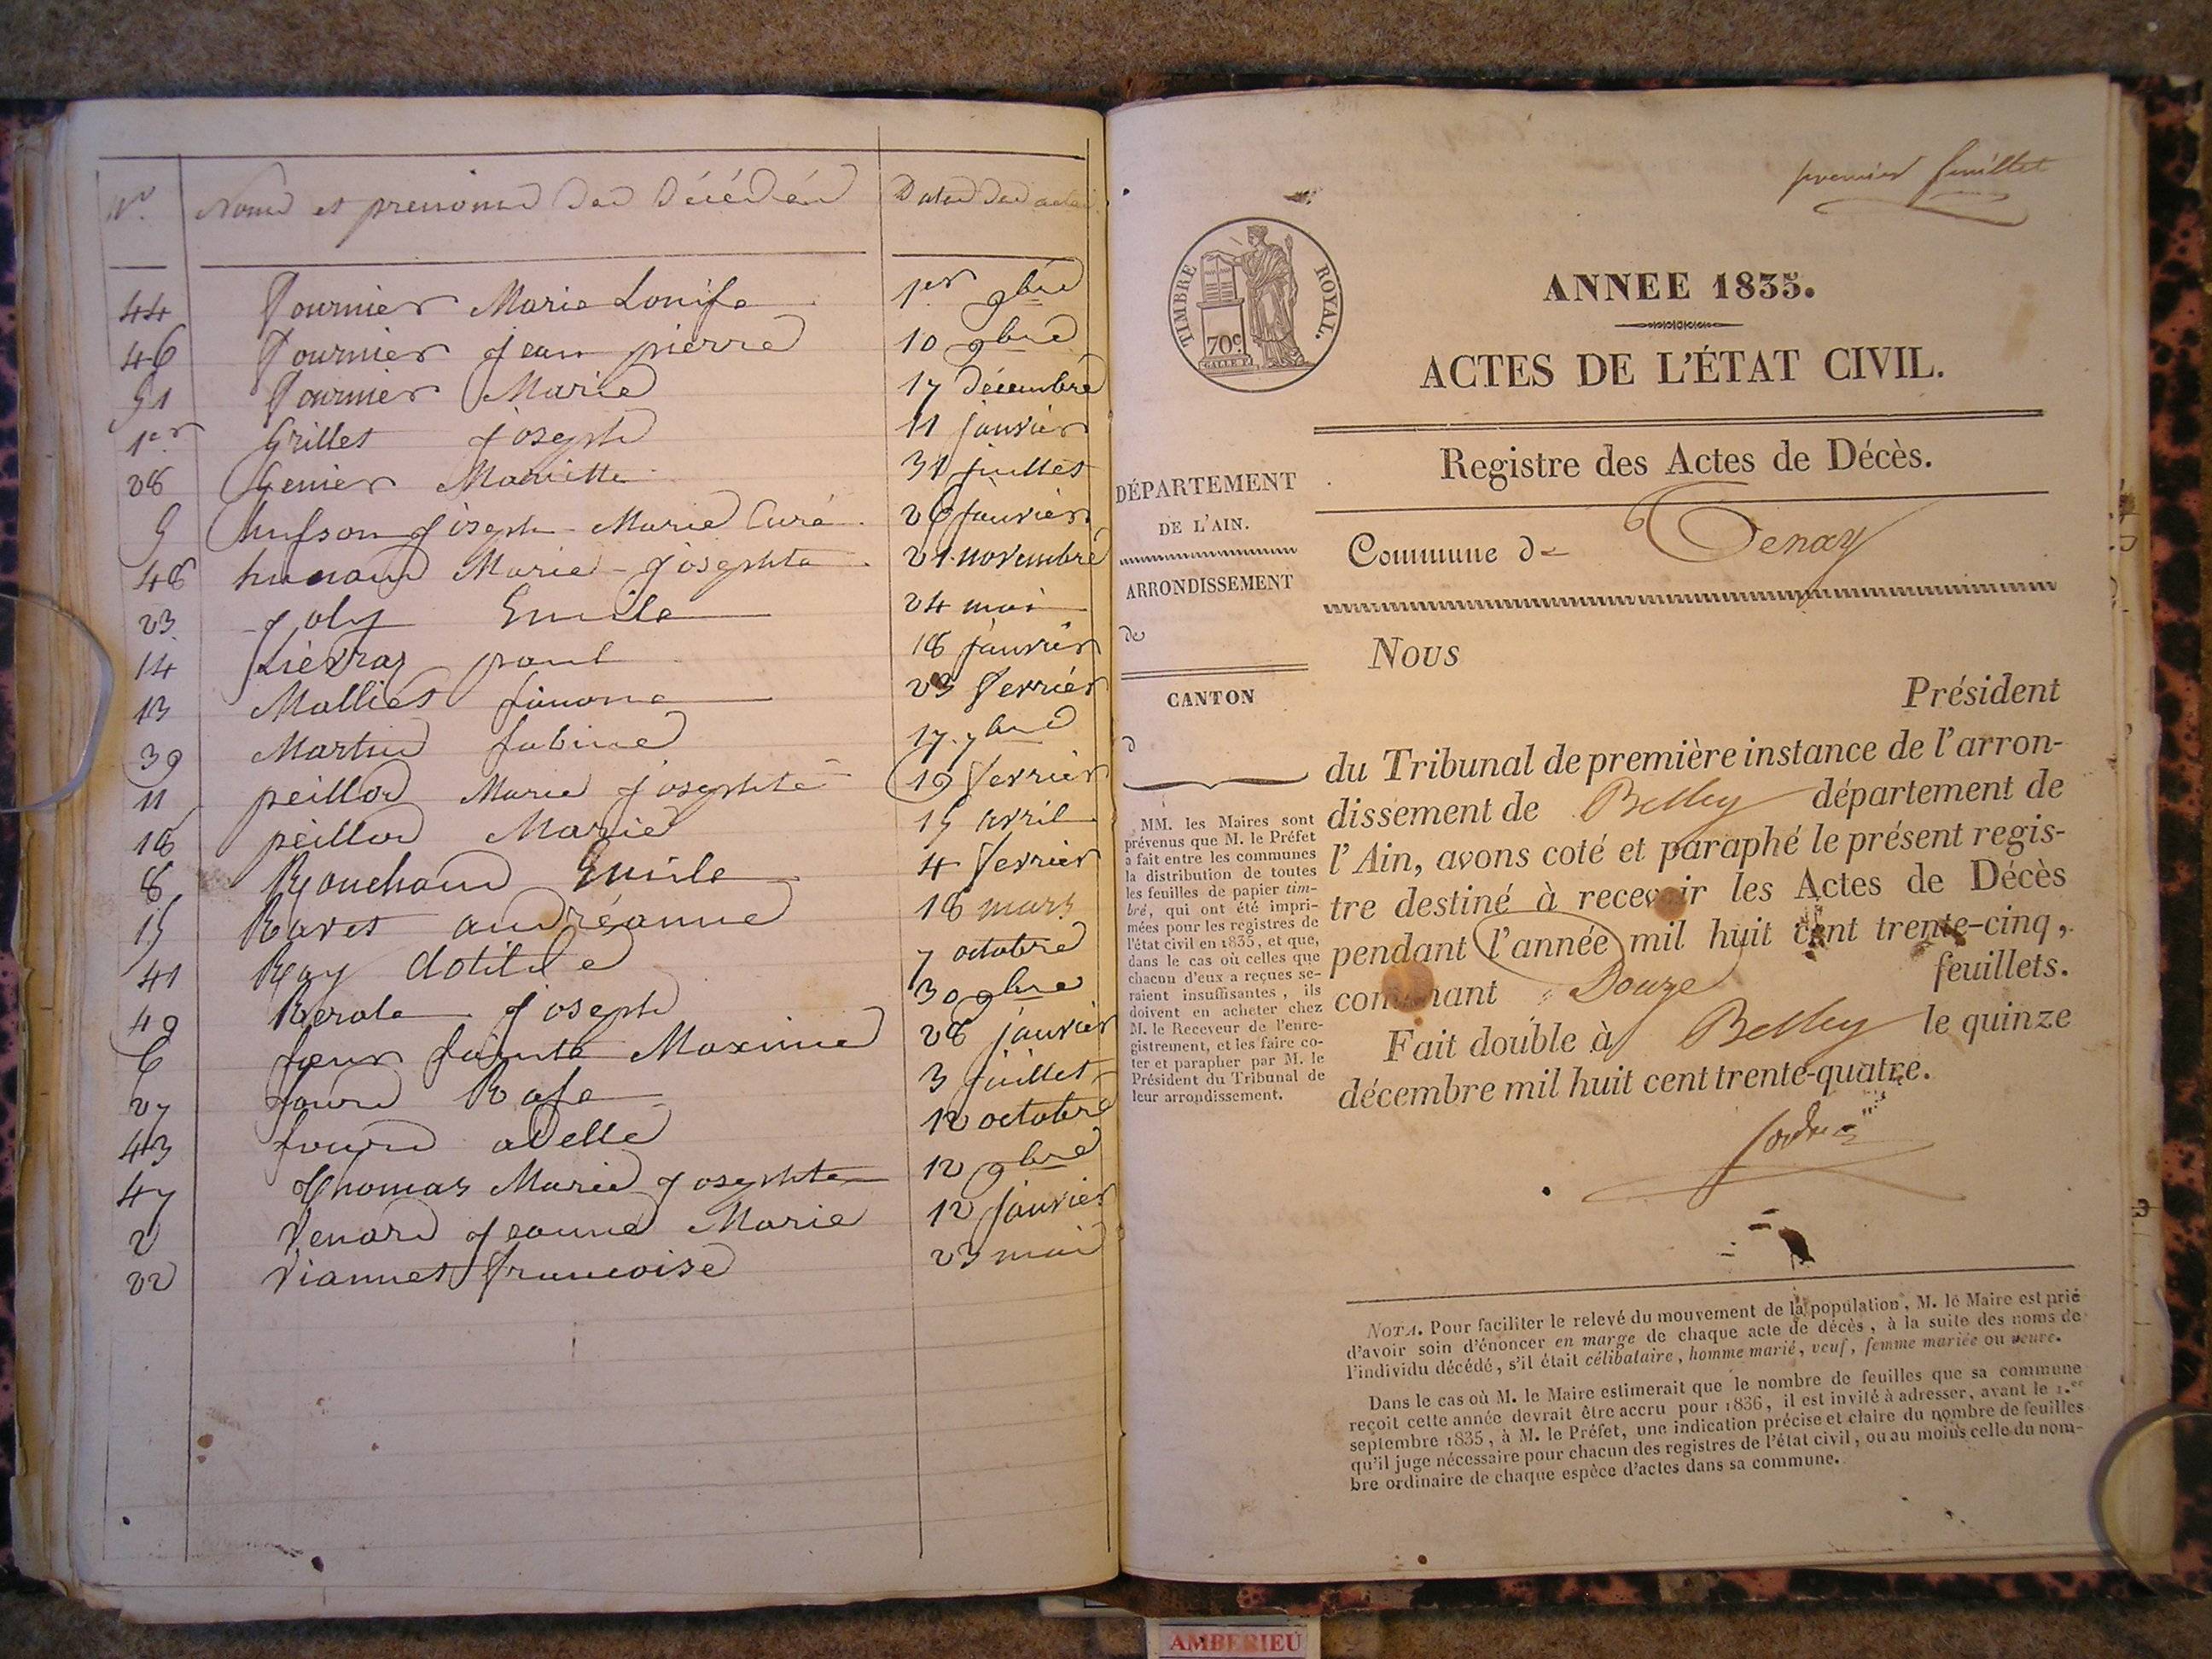 N.o Noms et prenoms des décédés Dates des actes
44 fournier Marie Louise 1er 9bre
46 fournier jean pierre 10 9bre
51 fournier Marie 17 décembre
1er Grillet joseph 11 janvier
28 Genier Mariette 31 juillet
5 husson joseph Marie Curé 26 janvier
48 Marie josephte 21 novembre
23 joly Emile 24 mai
14 Liévraz paul 18 janvier
13 Molliet simone 23 fevrier
39 Martin sabine 17 7bre
11 peillod Marie josephte 19 fevrier
18 peillod Marie 15 avril
8 Rouchand Emile 4 fevrier
15 Ravet andréanne 18 mars
41 Ray clotilde 7 octobre
49 Rerole joseph 30 9bre
6 soeur sainte Maxime 28 janvier
27 Rose 3 juillet
43 adelle 12 octobre
47 thomas Marie josephte 12 9bre
2 venard jeanne Marie 12 janvier
22 viannet francoise 23 mai
premier feuillet
TIMBRE ROYAL.
70c.
ANNEE 1835.
ACTES DE L'ÉTAT CIVIL.
Registre des Actes de Décès.
DÉPARTEMENT
DE L'AIN.
ARRONDISSEMENT
de
CANTON
d
MM. les Maires sont
prévenus que M. le Préfet
a fait entre les communes
la distribution de toutes
les feuilles de papier tim-
bré, qui ont été impri-
mées pour les registres de
l'état civil en 1835, et que,
dans le cas où celles que
chacun d'eux a reçues se-
raient insuffisantes, ils
doivent en acheter chez
M. le Receveur de l'enre-
gistrement, et les faire co-
ter et parapher par M. le
Président du Tribunal de
leur arrondissement.
Commune de Tenay
Nous
Président
du Tribunal de première instance de l'arron-
dissement de Belley département de
l'Ain, avons coté et paraphé le présent regis-
tre destiné à recevoir les Actes de Décès
pendant l'année mil huit cent trente-cinq,
contenant Douze feuillets.
Fait double à Belley le quinze
décembre mil huit cent trente-quatre.
NOTA. Pour faciliter le relevé du mouvement de la population, M. le Maire est prié
d'avoir soin d'énoncer en marge de chaque acte de décès, à la suite des noms de
l'individu décédé, s'il était célibataire, homme marié, veuf, femme mariée ou veuve.
Dans le cas où M. le Maire estimerait que le nombre de feuilles que sa commune
reçoit cette année devrait être accru pour 1836, il est invité à adresser, avant le 1.er
septembre 1835, à M. le Préfet, une indication précise et claire du nombre de feuilles
qu'il juge nécessaire pour chacun des registres de l'état civil, ou au moins celle du nom-
bre ordinaire de chaque espèce d'actes dans sa commune.
AMBERIEU